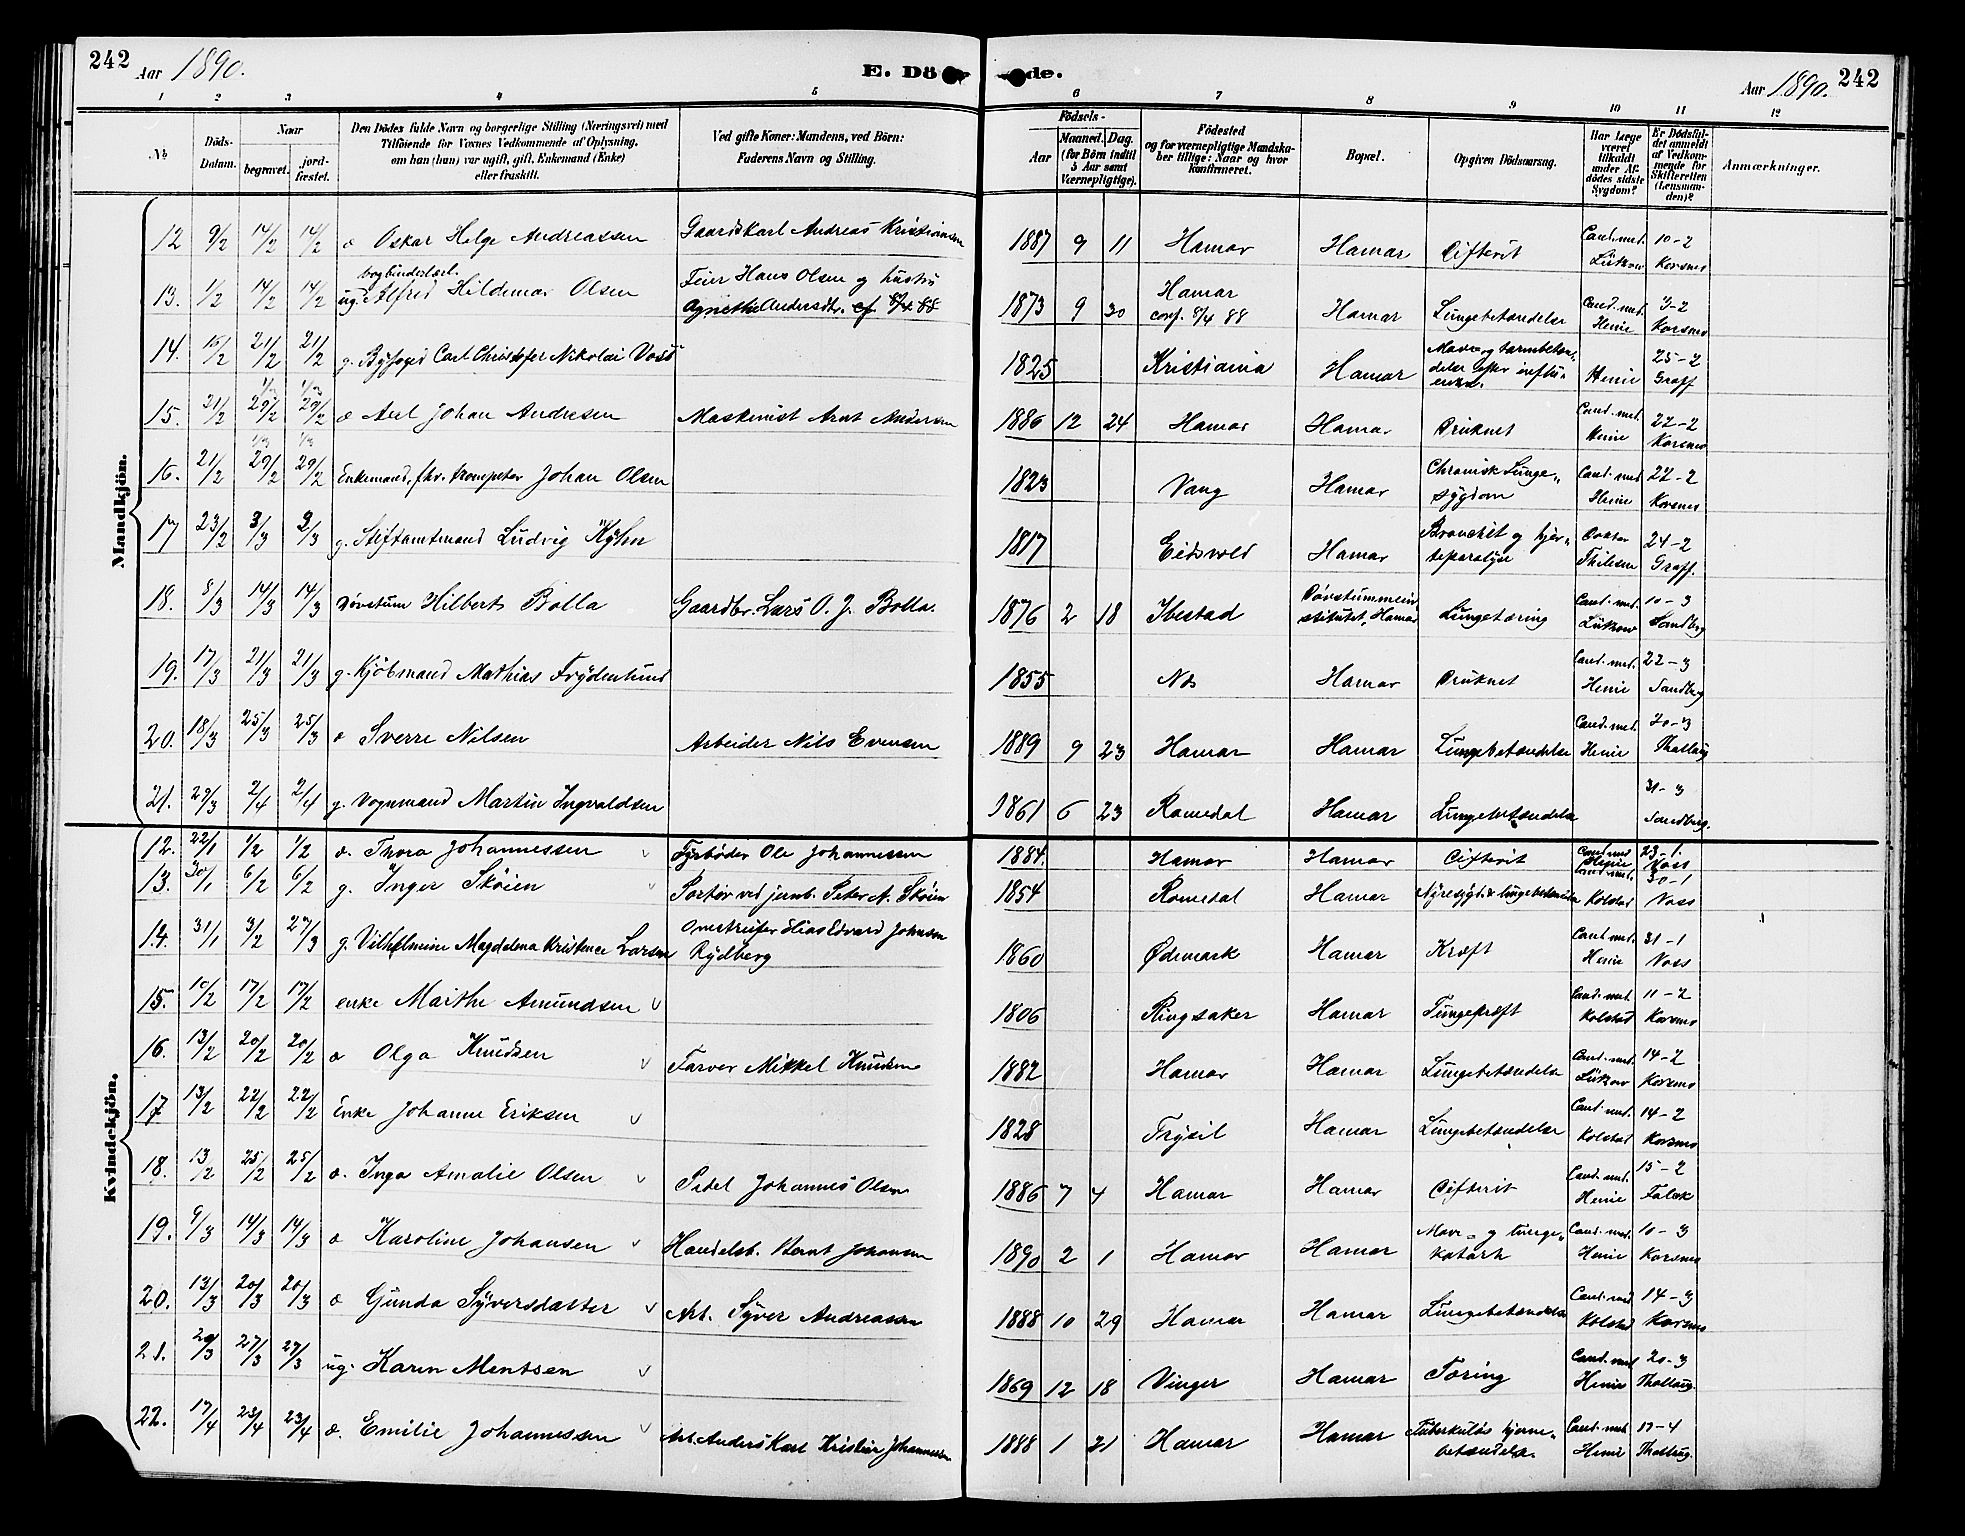 242 Aar 1890. E. Dö de. Aar 1890. 242
1 2 3 4 5 6 7 8 9 10 11 12
№ Döds-Datum. Naar begravet. jord-fæstet. Den Dödes fulde Navn og borgerlige Stilling (Næringsvei) med Tilföiende for Voxnes Vedkommende af Oplysning, om han (hun) var ugift, gift, Enkemand (Enke) eller fraskilt. Ved gifte Koner: Mandens, ved Börn: Faderens Navn og Stilling. Födsels- Aar Maaned. Dag. (for Börn indtil 5 Aar samt Værnepligtige). Födested og for værnepligtige Mandskaber tillige: Naar og hvor konfirmeret. Bopæl. Opgiven Dödsaarsag. Har Læge været tilkaldt under Afdödes sidste Sygdom? Er Dödsfaldet anmeldt af Vedkommende for Skifteretten (Lensmanden)? Anmærkninger.
Mandkjön.
12 9/2 14/2 14/2 o Oskar Helge Andreassen Gaardskarl Andreas Kristiansen 1887 9 11 Hamar Hamar Difterit Cand. med. Lütkow 10-2 Korsmo
13. 1/2 14/2 14/2 ug. bogbinderlærl. Alfred Hildemar Olsen Feier Hans Olsen og hustru Agnethe Andersdtr. cf. 8/4 88 1873 9 30 Hamar conf. 8/4 88 Hamar Lungebetændelse Cand. med. Henie 3-2 Korsmo
14. 15/2 21/2 21/2 g. Byfoged Carl Christofer Nikolai Voss 1825 Kristiania Hamar Mave- og tarmbetændelse efter influenza. Henie 25-2 Graff
15. 21/2 1/3 29/2 1/3 29/2 o Axel Johan Andresen Maskinist Arnt Andersen 1886 12 24 Hamar Hamar Druknet Cand. med. Henie 22-2 Korsmo
16. 21/2 1/3 29/2 1/3 29/2 Enkemand, fhv. trompeter Johan Olsen 1823 Vang Hamar Chronisk Lungesygdom Cand. med. Henie 22-2 Korsmo
17 23/2 3/3 3/3 g. Stiftamtmand Ludvig Kyhn 1817 Eidsvold Hamar Bronchit og hjerteparalyse Doktor Thilesen 24-2 Graff.
18. 8/3 14/3 14/3 Døvstum Hilbert Bolla Gaardbr. Lars O. J. Bolla. 1876 2 18 Ibestad Døvstummeinstitutet, Hamar Lungetæring Cand. med. Lütkow 10-3 Sandberg
19. 17/3 21/3 21/3 g. Kjöbmand Mathias Frydenlund 1855 Nes Hamar Druknet Cand. med. Henie 22-3 Sandberg
20. 18/3 25/3 25/3 o Sverre Nilsen Arbeider Nils Evensen 1889 9 23 Hamar Hamar Lungebetændelse Cand. med. Henie 20-3 Thallaug
21. 29/3 2/4 2/4 g. Vognmand Martin Ingvaldsen 1861 6 23 Romedal Hamar Lungebetændelse 31-3 Sandberg.
Kvindekjön.
12. 22/1 1/2 1/2 o. Thora Johannessen Fyrbøder Ole Johannessen 1884. Hamar Hamar Difterit Cand. med. Henie 23-1. Voss
13. 30/1 6/2 6/2 g. Inger Skøien Portør ved jernb. Peter N. Skøien 1854 Romedal Hamar Nyresygd. & lungebetændelse Cand. med. Kolstad 30-1 Voss
14. 31/1 3/2 27/3 g. Vilhelmine Magdalena Kristence Larsen Elias Edvard Johnsen Rydberg 1860 Ødemark Hamar Kræft Cand. med. Henie 31-1 Voss
15. 10/2 17/2 17/2 enke Marthe Amundsen 1806 Ringsaker Hamar Tungekræft Cand. med. Kolstad 11-2 Korsmo
16. 13/2 20/2 20/2 o Olga Knudsen Farver Mikkel Knudsen 1882 Hamar Hamar Lungebetændelse Cand. med. Lütkow 14-2 Korsmo
17 13/2 22/2 22/2 Enke Johanne Eriksen 1828 Trysil Hamar Lungebetændelse Cand. med. Kolstad 14-2 Korsmo
18. 13/2 25/2 25/2 o. Inga Amalie Olsen Pedel Johannes Olsen 1886 7 4 Hamar Hamar Difterit Cand. med. Henie 15-2 Falck
19. 9/3 14/3 14/3 o Karoline Johansen Handelsb. Bernt Johansen 1890 2 1 Hamar Hamar Mave- og lungekatarh Cand. med. Henie 10-3 Korsmo
20. 13/3 20/3 20/3 o Gunda Syversdatter Arb. Syver Andreassen 1888 10 29 Hamar Hamar Lungebetændelse Cand. med Kolstad 14-3 Korsmo
21. 20/3 27/3 27/3 ug. Karen Mentsen 1869 12 18 Vinger Hamar Tæring Cand. med Henie 20-3 Thallaug.
22. 17/4 23/4 23/4 o. Emilie Johannessen Arb. Anders Karl Kristian Johannessen 1888 1 21 Hamar Hamar Tuberkuløs hjernebetændelse. Cand. med Henie 17-4 Thallaug.